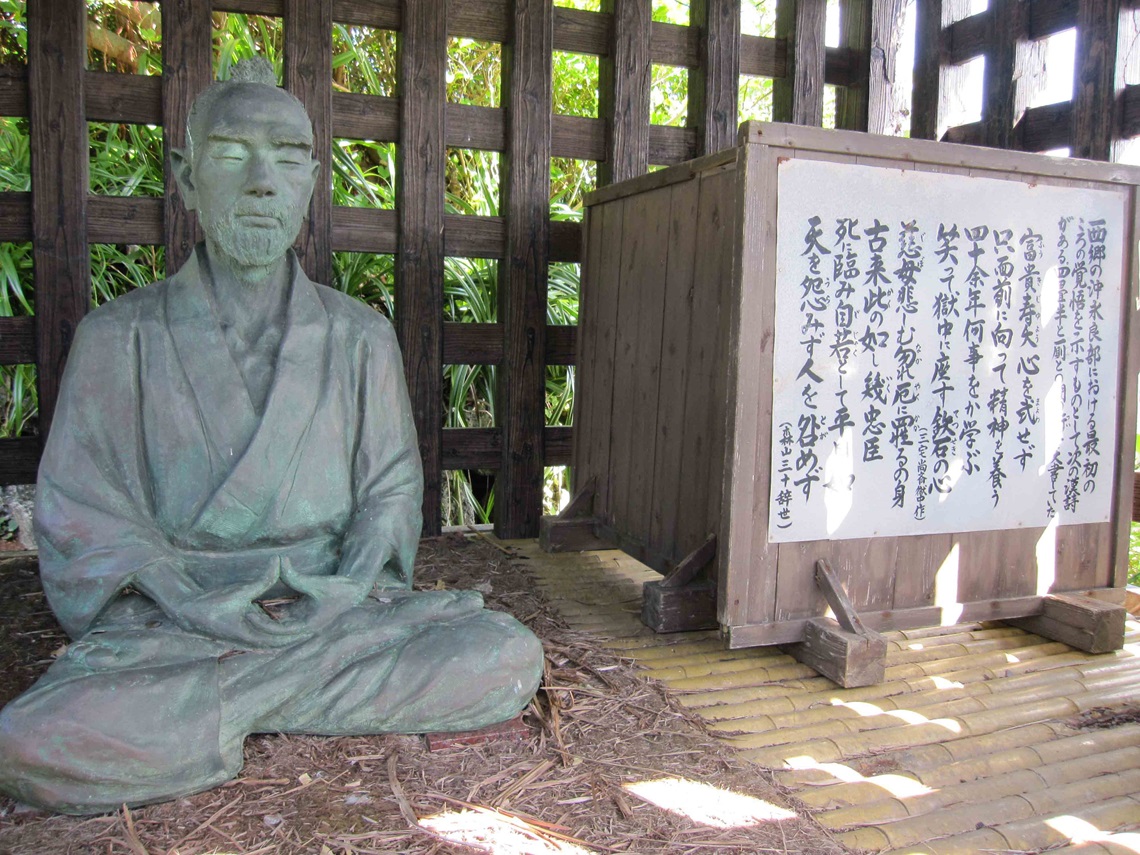 西郷の沖永良部における最初の
ころの覚悟を示すものとして次の漢詩
がある
富貴寿夭心を弐せず
只面前に向って精神を養う
四十余年何事をか学ぶ
笑って獄中に座す鉄石の心
(三宅尚斎傑作)
慈母悲しむ勿れ厄に罹るの身
古来此の如し幾忠臣
死に臨み自若として平
天を怨みず人を咎めず
(森山三十辞世)